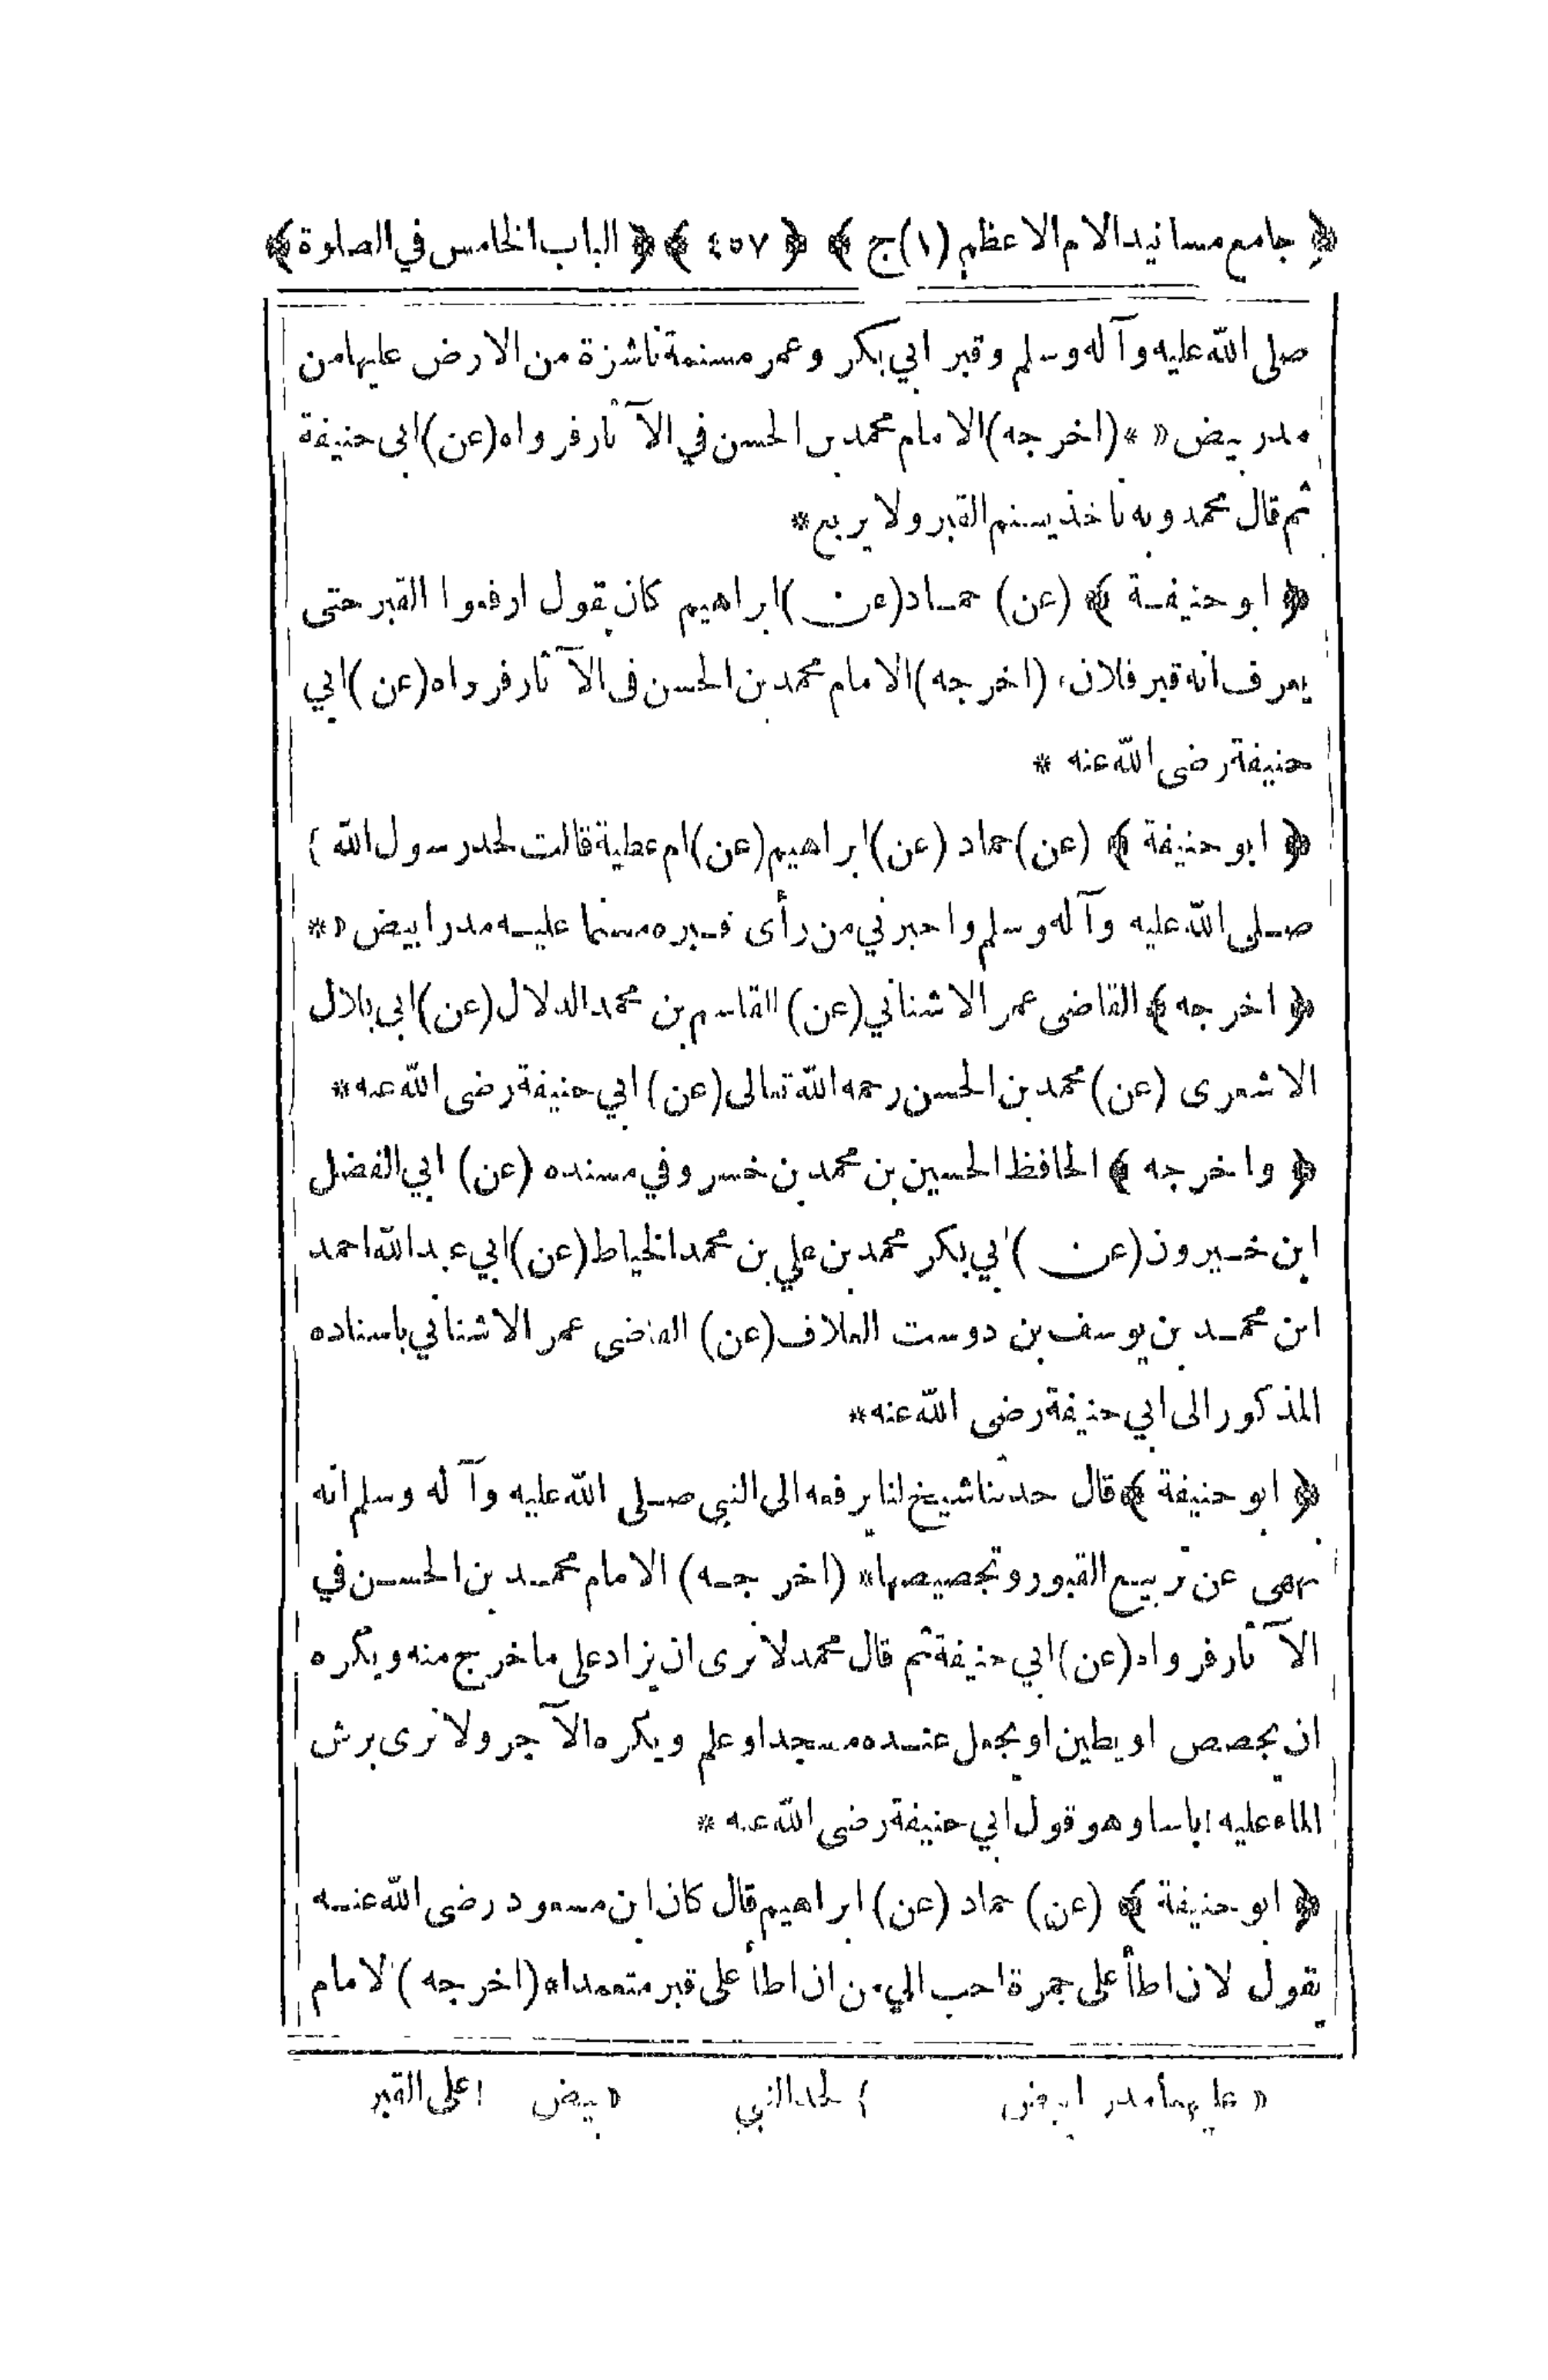 ﴿ جامع مسانيد الامام الاعظم (١) ج ﴾ ﴿ ٤٥٧ ﴾ ﴿ الباب الخامس في الصلوة ﴾
صلى الله عليه وآله وسلم وقبر ابي بكر وعمر مسنمة ناشزة من الارض عليها من
مدر بيض « * (اخرجه) الامام محمد بن الحسن في الآثار فرواه (عن) ابى حنيفة
ثم قال محمد وبه ناخذ يسنم القبر ولا يربع *
﴿ ابو حنيفة ﴾ (عن) حماد (عن) ابراهيم كان يقول ارفعوا القبر حتى
يعرف انه قبر فلان * (اخرجه) الامام محمد بن الحسن فى الآثار فرواه (عن) ابي
حنيفة رضى الله عنه *
﴿ ابو حنيفة ﴾ (عن) حماد (عن) ابراهيم (عن) ام عطية قالت لحد رسول الله }
صلى الله عليه وآله وسلم واخبرني من رأى قبره مسنما عليه مدر ابيض « *
﴿ اخرجه ﴾ القاضى عمر الاشناني (عن) القاسم بن محمد الدلال (عن) ابي بلال
الاشعرى (عن) محمد بن الحسن رحمه الله تعالى (عن) ابي حنيفة رضى الله عنه *
﴿ واخرجه ﴾ الحافظ الحسين بن محمد بن خسرو في مسنده (عن) ابي الفضل
ابن خيرون (عن) ابي بكر محمد بن علي بن محمد الخياط (عن) ابي عبد الله احمد
ابن محمد بن يوسف بن دوست العلاف (عن) القاضى عمر الاشناني باسناده
المذكور الى ابي حنيفة رضى الله عنه *
﴿ ابو حنيفة ﴾ قال حدثنا شيخ لنا يرفعه الى النبي صلى الله عليه وآله وسلم انه
نهى عن تربيع القبور وتجصيصها * (اخرجه) الامام محمد بن الحسن في
الآثار فرواه (عن) ابي حنيفة ثم قال محمد لا نرى ان يزاد على ما خرج منه ويكره
ان يجصص او يطين او يجعل عنده مسجدا او علم ويكره الآجر ولا نرى برش
الماء عليه ! باسا وهو قول ابي حنيفة رضى الله عنه *
﴿ ابو حنيفة ﴾ (عن) حماد (عن) ابراهيم قال كان ابن مسعود رضى الله عنه
يقول لان اطأ على جمرة احب الي من ان اطأ على قبر متعمدا * (اخرجه) الامام
« عليها مدر ابيض } لحد النبي « بيض ! على القبر